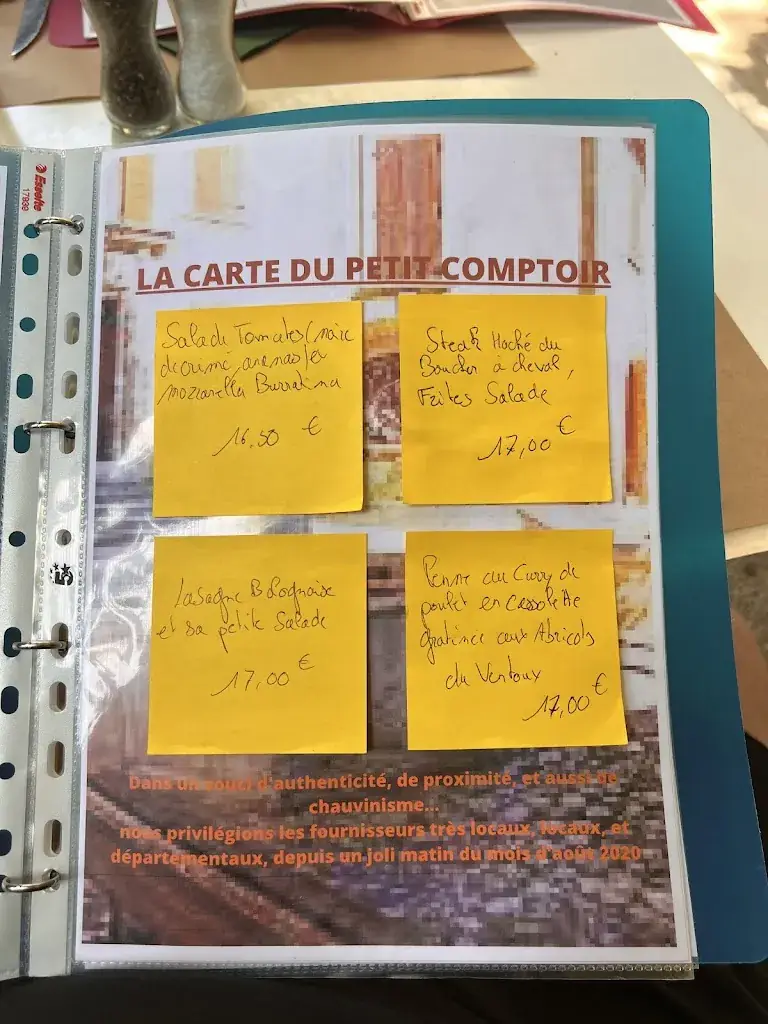 Esselte
17939
LA CARTE DU PETIT COMPTOIR
Salade Tomates (noire
de crimé, ananas) et
mozzarella Burratina
16,50 €
Steak Haché du
Boucher à cheval,
Frites Salade
17,00 €
Lasagne Bolognaise
et sa petite Salade
17,00 €
Penne au Curry de
poulet en cassolette
gratinée aux Abricots
du Ventoux
17,00 €
Dans un souci d'authenticité, de proximité, et aussi de
chauvinisme...
nous privilégions les fournisseurs très locaux, locaux, et
départementaux, depuis un joli matin du mois d'août 2020